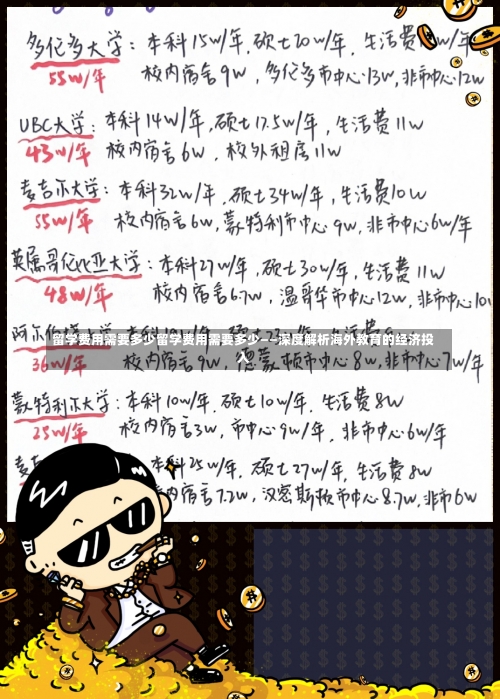 多伦多大学：本科15w/年，硕士20w/年，生活费 w/年
55w/年 校内宿舍9w，多伦多市中心13w，非市中心12w
UBC大学：本科14w/年，硕士17.5w/年，生活费11w
43w/年 校内宿舍6w，校外租房11w
麦吉尔大学：本科32w/年，硕士34w/年，生活费10w
55w/年 校内宿舍6w，蒙特利市中心9w，非市中心6w/年
英属哥伦比亚大学：本科27w/年，硕士30w/年，生活费11w
48w/年 校内宿舍6.7w，温哥华市中心12w，非市中心10
留学费用需要多少留学费用需要多少——深度解析海外教育的经济投
入
36w/年 校内宿舍9w，德蒙顿市中心8w，非市中心7w/年
蒙特利尔大学：本科10w/年，硕士10w/年，生活费8w
25w/年 校内宿舍3w，市中心9w/年，非市中心6w/年
本科25w/年，硕士27w/年，生活费8w
内宿舍7.2w，汉密斯顿市中心8.7w，非市6w